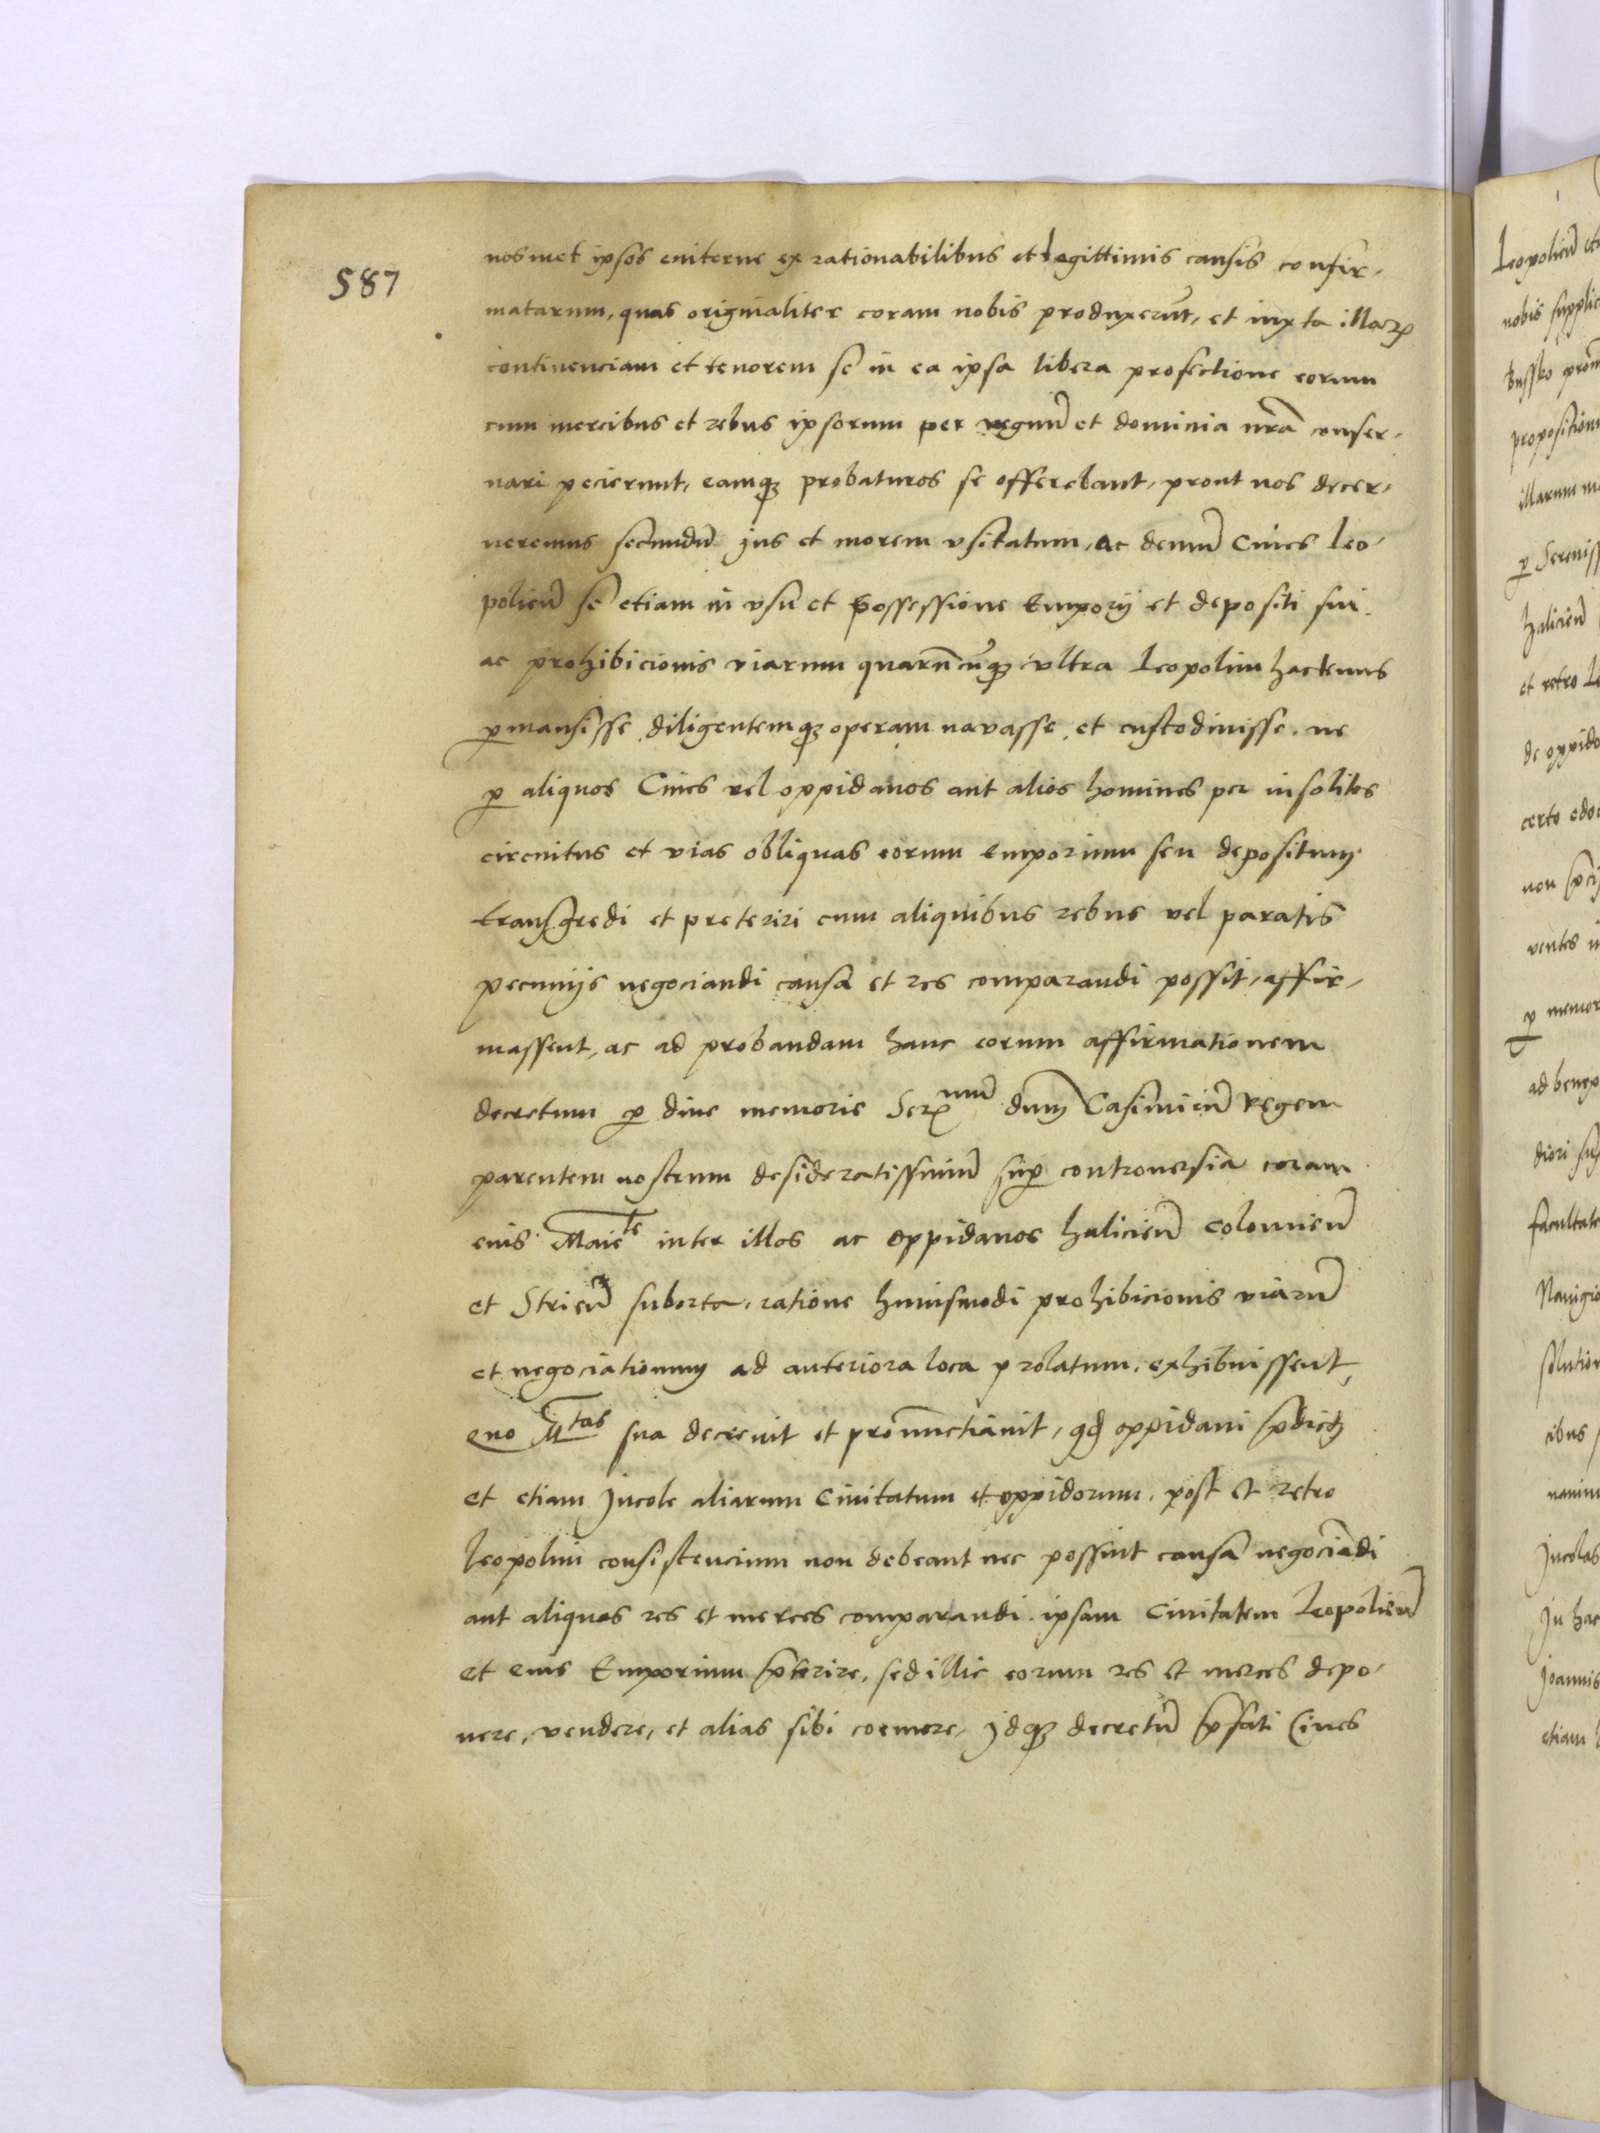 587
nosmet ipsos eviterne ex rationabilibus et legittimis causis confir-
matarum, quas originaliter coram nobis produxerūt, et iuxta illarꝝ
continenciam et tenorem se in ea ipsa libera profectione eorum
cum mercibus et rebus ipsorum per regnū et dominia nr̄a conser-
uari pecierunt, eamqꝫ probaturos se offerebant, prout nos decer-
neremus secundū jus et morem vsitatum, ac demū Ciues Leo-
polien̄ se etiam in vsu et possessione Emporij et depositi sui
ac prohibicionis viarum quarūcūqꝫ vltra Leopolim hactenus
ꝑmansisse diligentemqꝫ operam navasse, et custodiuisse, ne
ꝑ aliquos Ciues vel oppidanos aut alios homines per insolitos
circuitus et vias obliquas eorum emporium seu depositum
transgredi et preteriri cum aliquibus rebus vel paratis
pecunijs negociandi causa et res comparandi possit, affir-
massent, ac ad probandam hanc eorum affirmationem
decretum ꝑ diue memorie Serꝫmū dnm̄ Casimirū regem
parentem nostrum desideratissimū suꝑ controuersia coram
eius Maiete inter illos ac oppidanos halicien̄ colomien̄
et Strien̄ suborta, ratione huiusmodi prohibicionis viarū
et negociationum ad anteriora loca prolatum, exhibuissent,
quo Mtas sua decreuit et pronunctiauit, qd̄ oppidani p̄dicti
et etiam Incole aliarum Ciuitatum et oppidorum, post et retro
Leopolim consistencium non debeant nec possint causa negociādi
aut aliquas res et merces comparandi ipsam Ciuitatem Leopolien̄
et eius Emporium p̄terire, sed illic eorum res et merces depo-
nere, vendere, et alias sibi coemere, jdqꝫ decretū p̄fati Ciues
Leopolien̄
nobis
proposition
illarum
ꝑ
halicien̄
et retro
de oppido
certo
non
ꝑ memor
facultate
cibus
Incolas
In hac
Joannis
etiam